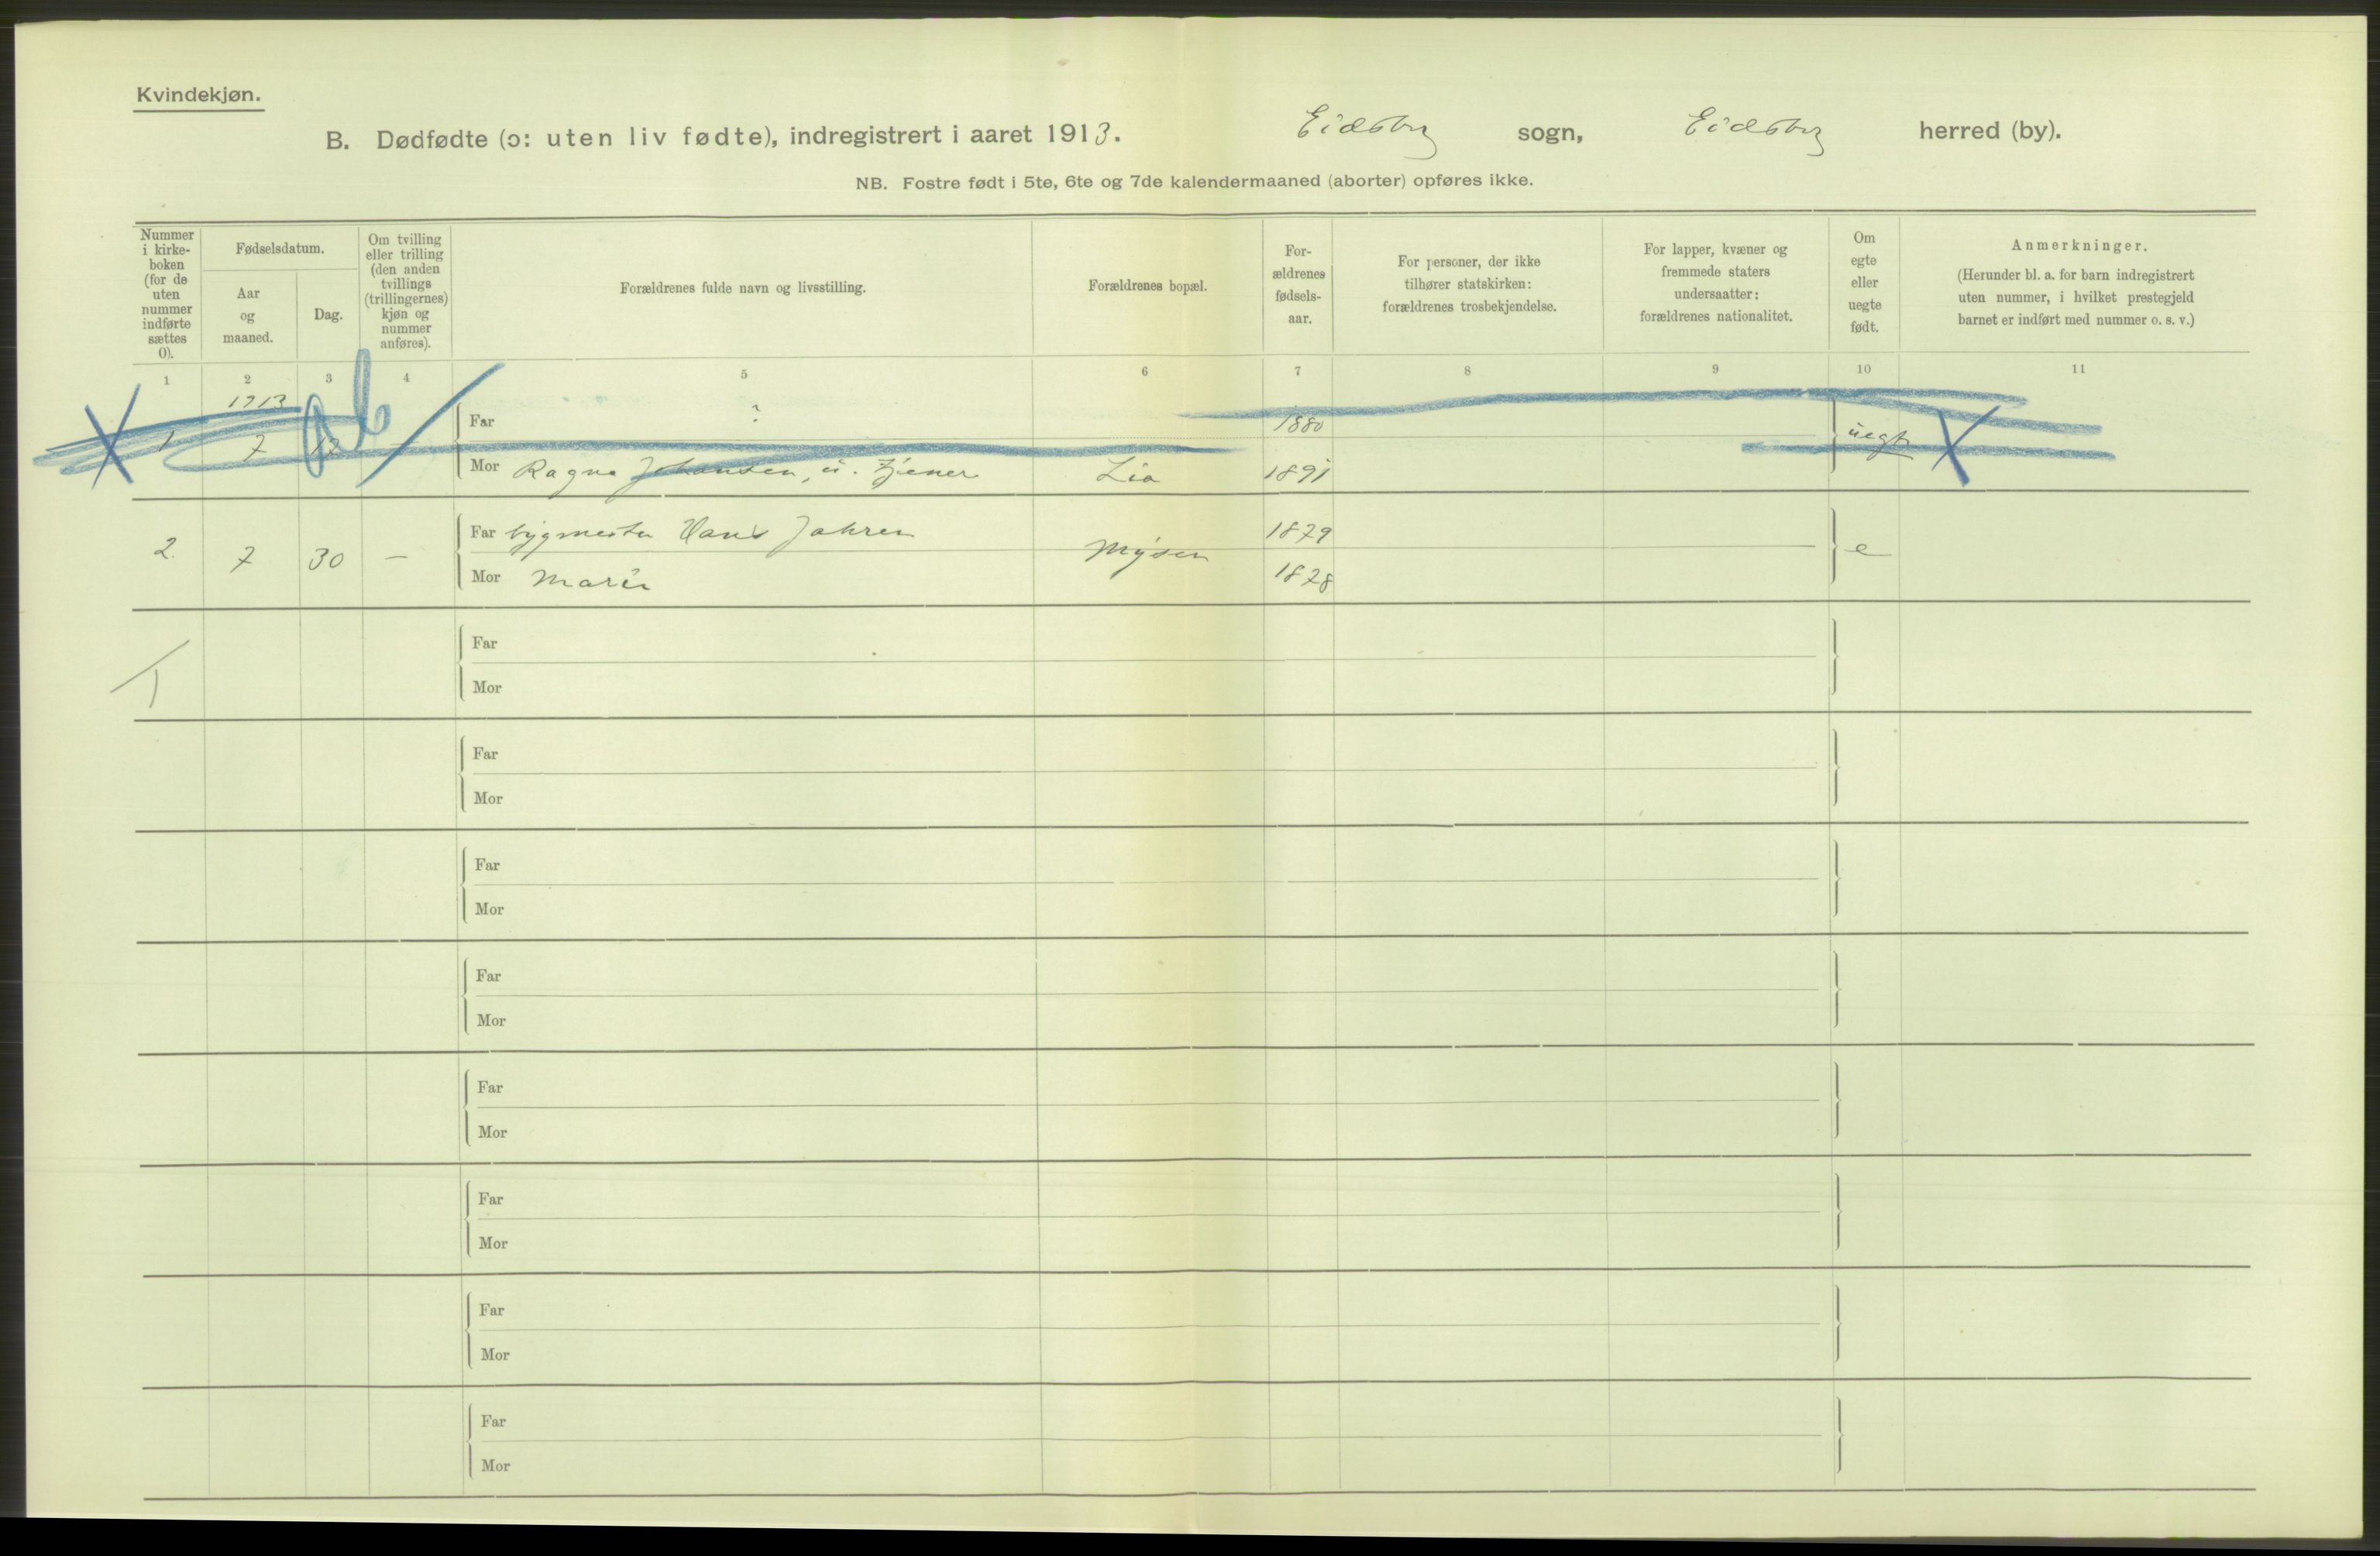 Kvindekjøn.
B. Dødfødte (ɔ: uten liv fødte), indregistrert i aaret 1913. Eidsberg sogn, Eidsberg herred (by).
NB. Fostre født i 5te, 6te og 7de kalendermaaned (aborter) opføres ikke.
Nummer
i kirke-
boken
(for de
uten
nummer
indførte
sættes
0).
Fødselsdatum.
Aar
og
maaned.
Dag.
Om tvilling
eller trilling
(den anden
tvillings
(trillingernes)
kjøn og
nummer
anføres).
Forældrenes fulde navn og livsstilling.
Forældrenes bopæl.
For-
ældrenes
fødsels-
aar.
For personer, der ikke
tilhører statskirken:
forældrenes trosbekjendelse.
For lapper, kvæner og
fremmede staters
undersaatter:
forældrenes nationalitet.
Om
egte
eller
uegte
født.
Anmerkninger.
(Herunder bl. a. for barn indregistrert
uten nummer, i hvilket prestegjeld
barnet er indført med nummer o. s. v.)
1 2 3 4 5 6 7 8 9 10 11
1913
ab
Far ? 1880
1 7 12 uegte
Mor Ragna Johansen, u. tjener Lia 1891
Far bygmester Hans Jahren 1879
2. 7 30 — Mysen e
Mor Marie 1878
Far
Mor
Far
Mor
Far
Mor
Far
Mor
Far
Mor
Far
Mor
Far
Mor
Far
Mor